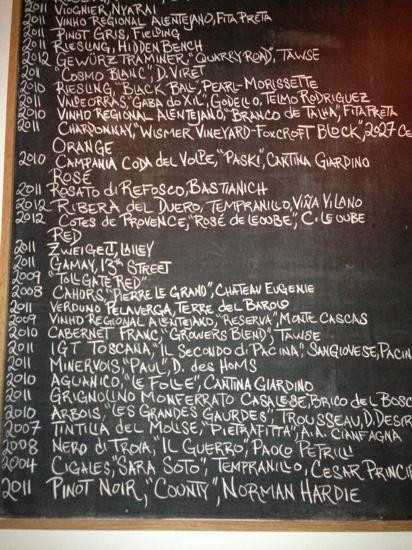 2011 VIOGNIER, NYARAI
2011 VINHO REGIONAL ALENTEJANO, FITA PRETA
2011 PINOT GRIS, FIELDING
2011 RIESLING, HIDDEN BENCH
2012 GEWÜRZTRAMINER, "QUARRY ROAD", TAWSE
2011 "COSMO BLANC", D. VIRET
2010 RIESLING, "BLACK BALL", PEARL-MORISSETTE
2011 VALDEORRAS, "GABA DO XIL", GODELLO, TELMO RODRIGUEZ
2010 VINHO REGIONAL ALENTEJANO, BRANCO DE TALHA, FITAPRETA
2011 CHARDONNAY, "WISMER VINEYARD-FOXCROFT BLOCK", 2027 CE
ORANGE
2010 CAMPANIA CODA DEL VOLPE, "PASKI", CANTINA GIARDINO
ROSÉ
2011 ROSATO di REFOSCO, BASTIANICH
2012 RIBERA DEL DUERO, TEMPRANILLO, VIÑA VILANO
2012 COTES DE PROVENCE, "ROSÉ DE LEOUBE", C. LEOUBE
RED
2011 ZWEIGELT, LAILEY
2011 GAMAY, 13TH STREET
2009 "TOLLGATE RED"
2008 CAHORS, "PIERRE LE GRAND", CHATEAU EUGENIE
2011 VERDUNO PELAVERGA, TERRE DEL BAROLO
2009 VINHO REGIONAL ALENTEJANO, "RESERVA", MONTE CASCAS
2010 CABERNET FRANC, "GROWERS BLEND", TAWSE
2011 IGT TOSCANA, "IL SECONDO di PACINA", SANGIOVESE, PACIN
2011 MINERVOIS, "PAUL", D. des HOMS
2010 AGLIANICO, "LE FOLLE", CANTINA GIARDINO
2011 GRIGNOLINO MONFERRATO CASALESE, BRICO DEL BOSC
2010 ARBOIS, "LES GRANDES GAURDES", TROUSSEAU, D. DESIR
2007 TINTILIA DEL MOLISE, "PIETRAFITTA", A.A. CIANFAGNA
2008 NERO di TROIA, "IL GUERRO", PAOLO PETRILLI
2004 CIGALES, "SARA SOTO", TEMPRANILLO, CESAR PRINCIP
2011 PINOT NOIR, "COUNTY", NORMAN HARDIE